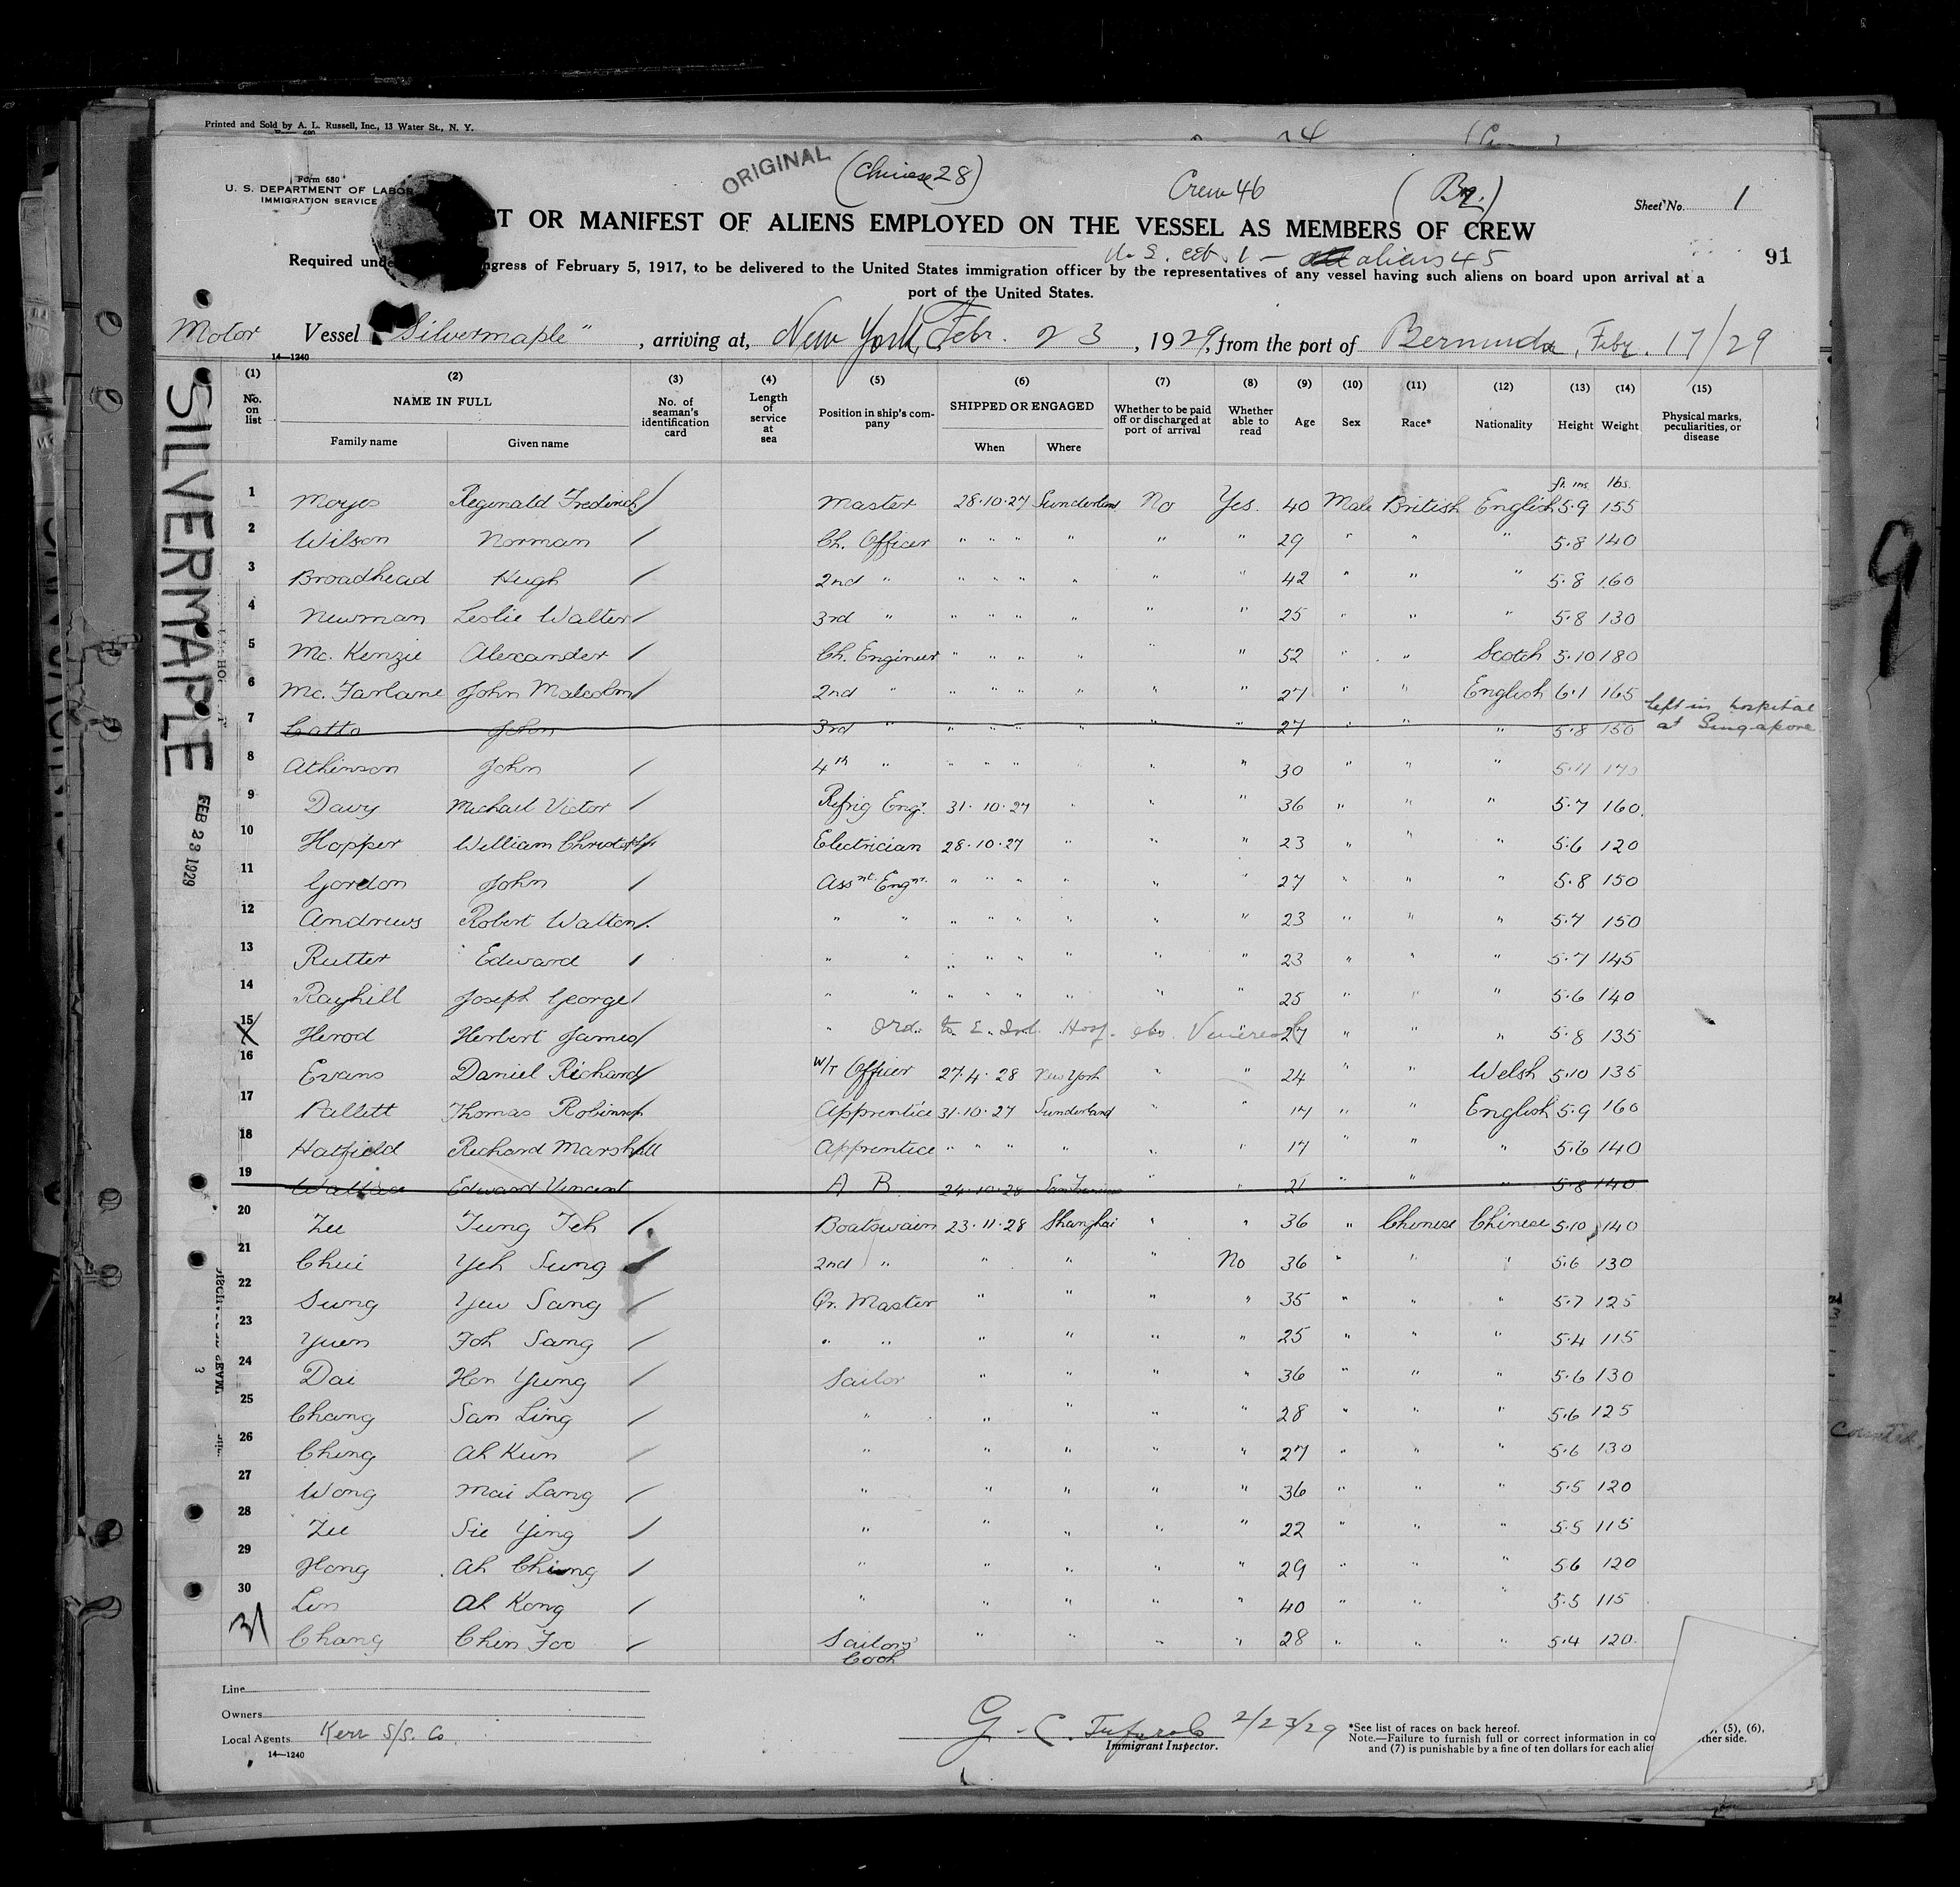 Printed and Sold by A. L. Russell, Inc., 13 Water St., N. Y.
ORIGINAL (Chinese 28) Crew 46 (Br.)
Form 680
U. S. DEPARTMENT OF LABOR
IMMIGRATION SERVICE
Sheet No. 1
ST OR MANIFEST OF ALIENS EMPLOYED ON THE VESSEL AS MEMBERS OF CREW
U. S. cit. 1 - aliens 45
91
Required unde ngress of February 5, 1917, to be delivered to the United States immigration officer by the representatives of any vessel having such aliens on board upon arrival at a
port of the United States.
Motor Vessel "Silvermaple" , arriving at, New York, Febr. 23 , 1929, from the port of Bermuda, Feby. 17/29
14—1240
SILVERMAPLE
FEB 23 1929
(1) (2) (3) (4) (5) (6) (7) (8) (9) (10) (11) (12) (13) (14) (15)
No. on list NAME IN FULL Family name Given name No. of seaman's identification card Length of service at sea Position in ship's company SHIPPED OR ENGAGED When Where Whether to be paid off or discharged at port of arrival Whether able to read Age Sex Race* Nationality Height Weight Physical marks, peculiarities, or disease
ft. ins. lbs.
1 Moyes Reginald Frederick Master 28.10.27 Sunderland No Yes. 40 Male British English 5.9 155
2 Wilson Norman Ch. Officer " " " " " " 29 " " " 5.8 140
3 Broadhead Hugh 2nd " " " " " " " 42 " " " 5.8 160
4 Newman Leslie Walter 3rd " " " " " " " 25 " " " 5.8 130
5 Mc. Kenzie Alexander Ch. Engineer " " " " " " 52 " " Scotch 5.10 180
6 Mc. Farlane John Malcolm 2nd " " " " " " " 27 " " English 6.1 165
7 Catto John 3rd " " " " " " " 27 " " " 5.8 150 left in hospital at Singapore
8 Atkinson John 4th " " " " " " 30 " " "
9 Davy Michael Victor Refrig Engr. 31.10.27 " " " 36 " " " 5.7 160.
10 Hopper William Christopher Electrician 28.10.27 " " " 23 " " " 5.6 120
11 Gordon John Assnt. Engnr. " " " " " " 27 " " " 5.8 150
12 Andrews Robert Walton " " " " " " " " 23 " " " 5.7 150
13 Rutter Edward " " " " " " " 23 " " " 5.7 145
14 Rayhill Joseph George " " " " " " " " 25 " " " 5.6 140
15 X Herod Herbert James " Ord. to E. Isl. Hosp. obs. Venereal 27 " " " 5.8 135
16 Evans Daniel Richard W/T Officer 27.4.28 New York " " 24 " " Welsh 5.10 135
17 Pallett Thomas Robinson Apprentice 31.10.27 Sunderland " " 17 " " English 5.9 160
18 Hatfield Richard Marshall Apprentice " " " " " " 17 " " " 5.6 140
19 Wallace Edward Vincent A B 24.10.28 San Francisco " " 21 " " " 5.8 140
20 Zee Tung Teh Boatswain 23.11.28 Shanghai " " 36 " Chinese Chinese 5.10 140
21 Chui Yeh Sung 2nd " " " " No 36 " " " 5.6 130
22 Sung Yew Sang Qr. Master " " " " 35 " " " 5.7 125
23 Yuen Foh Sang " " " " " " 25 " " " 5.4 115
24 Dai Hon Yung Sailor " " " " 36 " " " 5.6 130
25 Chang San Ling " " " " " 28 " " " 5.6 125
26 Ching Ah Kun " " " " " 27 " " " 5.6 130
27 Wong Mai Lang " " " " " 36 " " " 5.5 120
28 Zee Sie Ying " " " " " 22 " " " 5.5 115
29 Hong Ah Chiang " " " " " 29 " " " 5.6 120
30 Lin Ah Kong " " " " " 40 " " " 5.5 115
31 Chang Chin Foo Sailors' Cook " " " " 28 " " " 5.4 120.
Line
Owners
Local Agents Kerr S/S. Co.
14—1240
G. C. 2/23/29
Immigrant Inspector.
*See list of races on back hereof.
Note.—Failure to furnish full or correct information in co ), (5), (6),
and (7) is punishable by a fine of ten dollars for each alie other side.
9